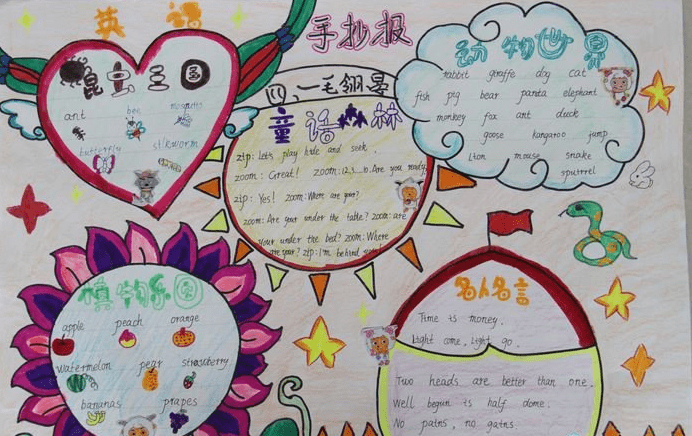 英语
手抄报
昆虫王国
ant bee mosquito
butterfly silkworm
童话森林
zip: Let's play hide and seek.
zoom: Great! zoom: 1.2.3...10. Are you ready
zip: Yes! zoom: Where are you?
zoom: Are your under the table? zoom: are
your under the bed? zoom: Where
are your? zip: I'm behind
动物世界
rabbit giraffe dog cat
fish pig bear panta elephant
monkey fox ant duck
goose kangaroo jump
Lion mouse snake
squirrel
植物乐园
apple peach orange
watermelon pear strawberry
bananas grapes
名人名言
Time is money.
Light come, Light go.
Two heads are better than one.
Well begun is half dome.
No pains, no gains